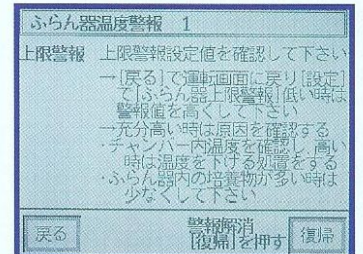 ふらん器温度警報 1
上限警報 上限警報設定値を確認して下さい
→[戻る]で運転画面に戻り[設定]
で[ふらん器上限警報]低い時は
警報値を高くして下さい
→充分高い時は原因を確認する
・チャンバー内温度を確認し、高い
時は温度を下げる処置をする
・ふらん器内の培養物が多い時は
少なくして下さい
戻る 警報解消 復帰
[復帰]を押す